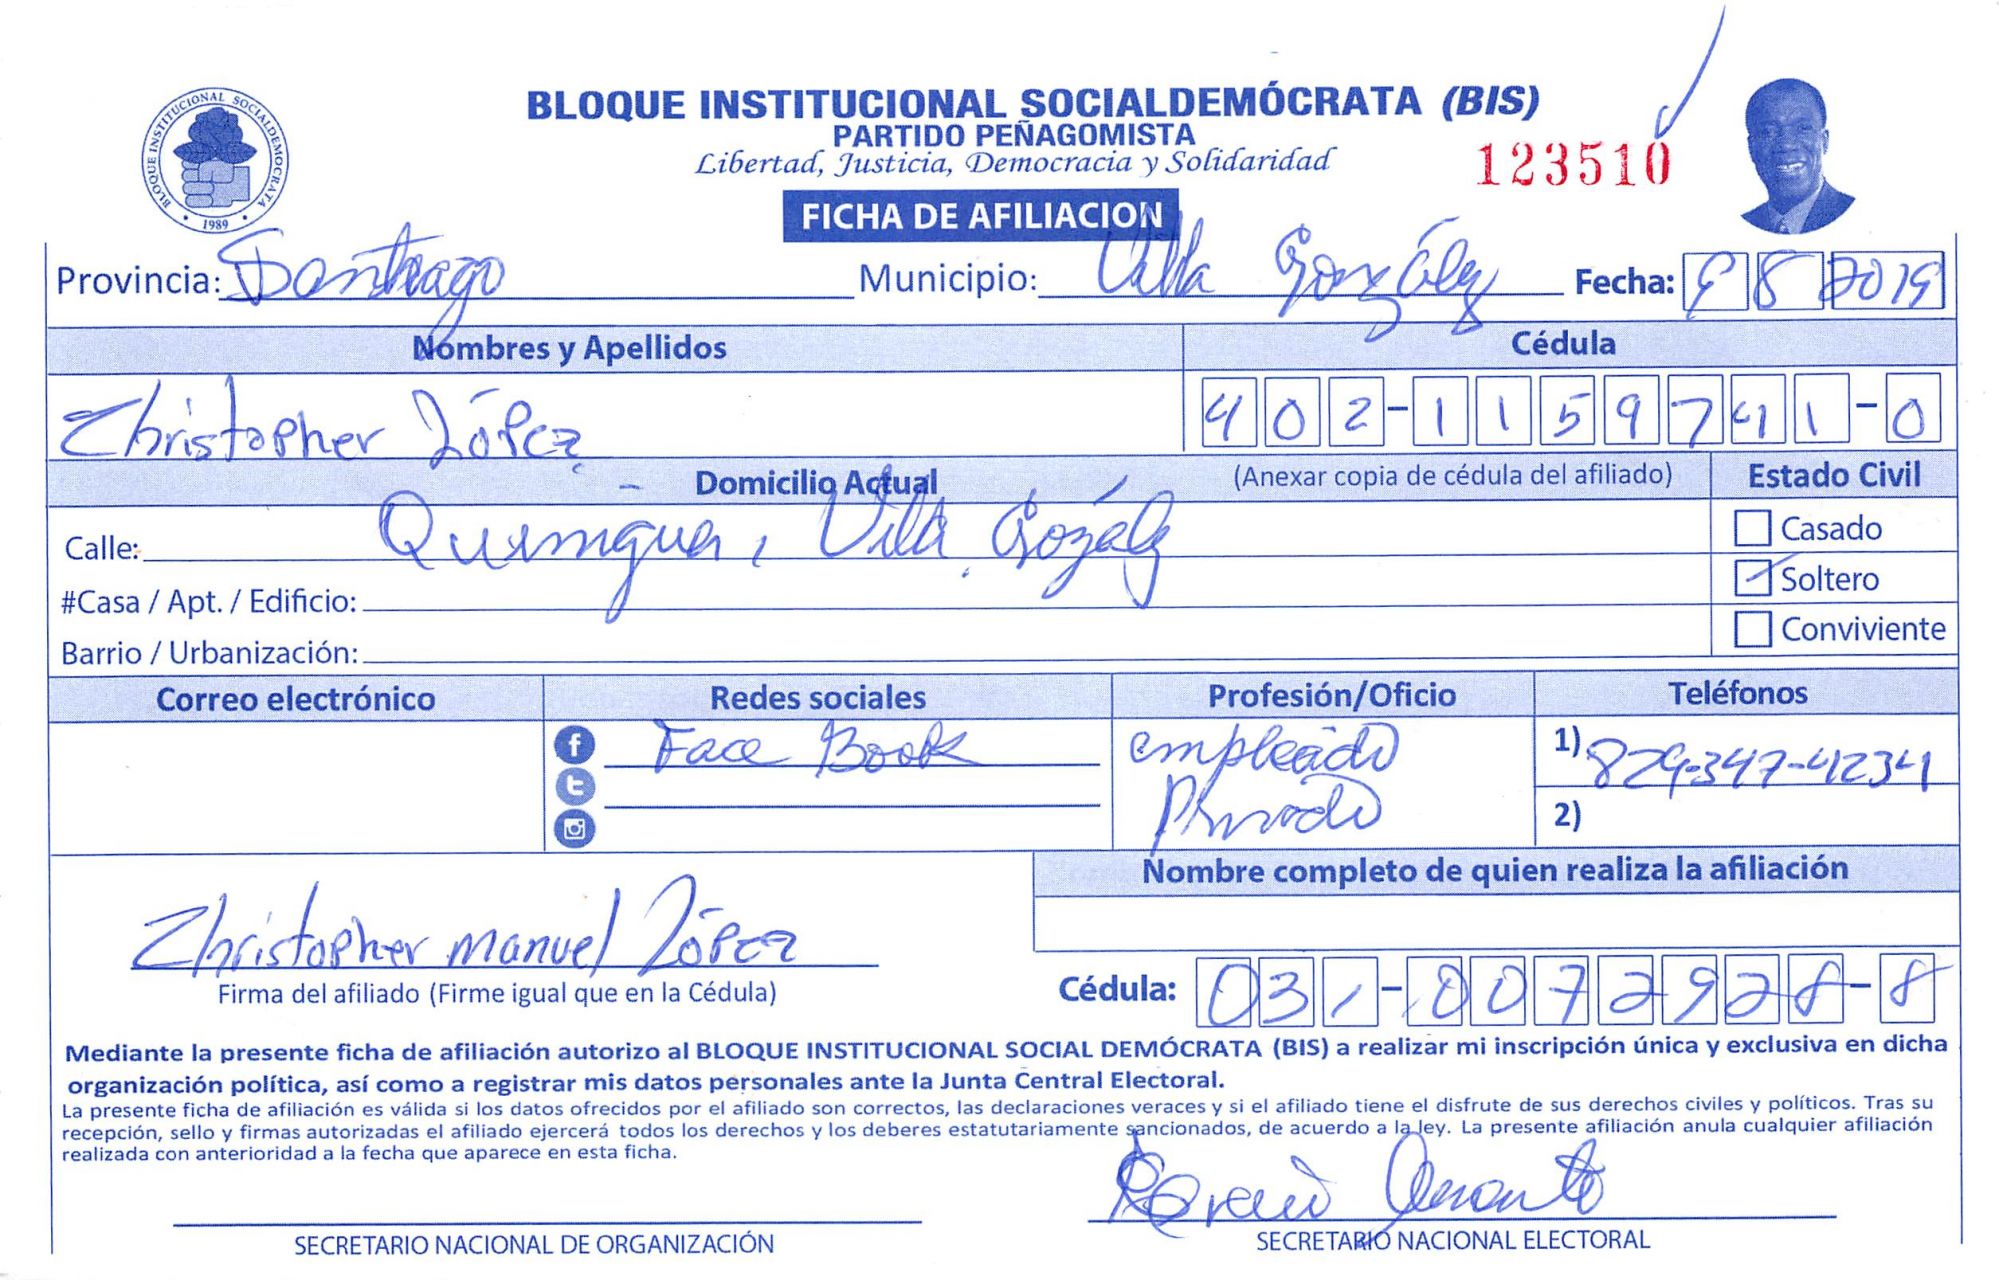 BLOQUE INSTITUCIONAL SOCIALDEMÓCRATA 1989
BLOQUE INSTITUCIONAL SOCIALDEMÓCRATA (BIS)
PARTIDO PEÑAGOMISTA
Libertad, Justicia, Democracia y Solidaridad
123510
FICHA DE AFILIACION
Provincia: Santiago Municipio: Villa González Fecha: 9 8 2019
Nombres y Apellidos Cédula
Christopher López 402-1159741-0
Domicilio Actual (Anexar copia de cédula del afiliado) Estado Civil
Calle: Quinigua, Villa Gozález Casado
#Casa / Apt. / Edificio: Soltero
Barrio / Urbanización: Conviviente
Correo electrónico Redes sociales Profesión/Oficio Teléfonos
Face Book empleado 1) 829-347-4234
Privado 2)
Nombre completo de quien realiza la afiliación
Christopher manuel López
Firma del afiliado (Firme igual que en la Cédula) Cédula: 031-0072928-8
Mediante la presente ficha de afiliación autorizo al BLOQUE INSTITUCIONAL SOCIAL DEMÓCRATA (BIS) a realizar mi inscripción única y exclusiva en dicha
organización política, así como a registrar mis datos personales ante la Junta Central Electoral.
La presente ficha de afiliación es válida si los datos ofrecidos por el afiliado son correctos, las declaraciones veraces y si el afiliado tiene el disfrute de sus derechos civiles y políticos. Tras su
recepción, sello y firmas autorizadas el afiliado ejercerá todos los derechos y los deberes estatutariamente sancionados, de acuerdo a la ley. La presente afiliación anula cualquier afiliación
realizada con anterioridad a la fecha que aparece en esta ficha.
SECRETARIO NACIONAL DE ORGANIZACIÓN SECRETARIO NACIONAL ELECTORAL